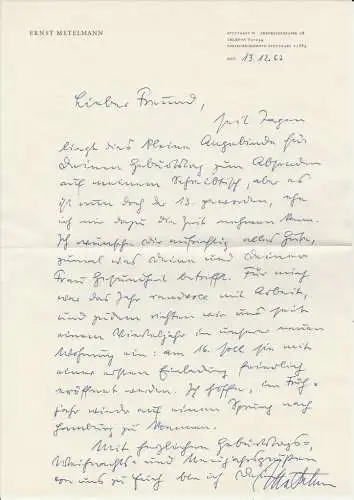 ERNST METELMANN
STUTTGART
TELEFON
DEN 13.12.62
Lieber Freund,
seit Tagen
liegt dies kleine Angebinde für
Deinen Geburtstag zum Absenden
auf meinem Schreibtisch, aber es
ist nun doch der 13. geworden, ehe
ich mir dazu die Zeit nehmen kann.
Ich wünsche dir aufrichtig alles Gute,
zumal was deine und deiner
Frau Gesundheit betrifft. Für mich
war das Jahr randvoll mit Arbeit,
und zudem richten wir uns seit
einem Vierteljahr in unserer neuen
Wohnung ein: am 16. soll sie mit
einer ersten Einladung feierlich
eröffnet werden. Ich hoffe, im Früh-
jahr wieder auf einen Sprung nach
Hamburg zu kommen.
Mit herzlichen Geburtstags-,
Weihnachts- und Neujahrsgrüßen
von uns zu Euch bin ich Dein